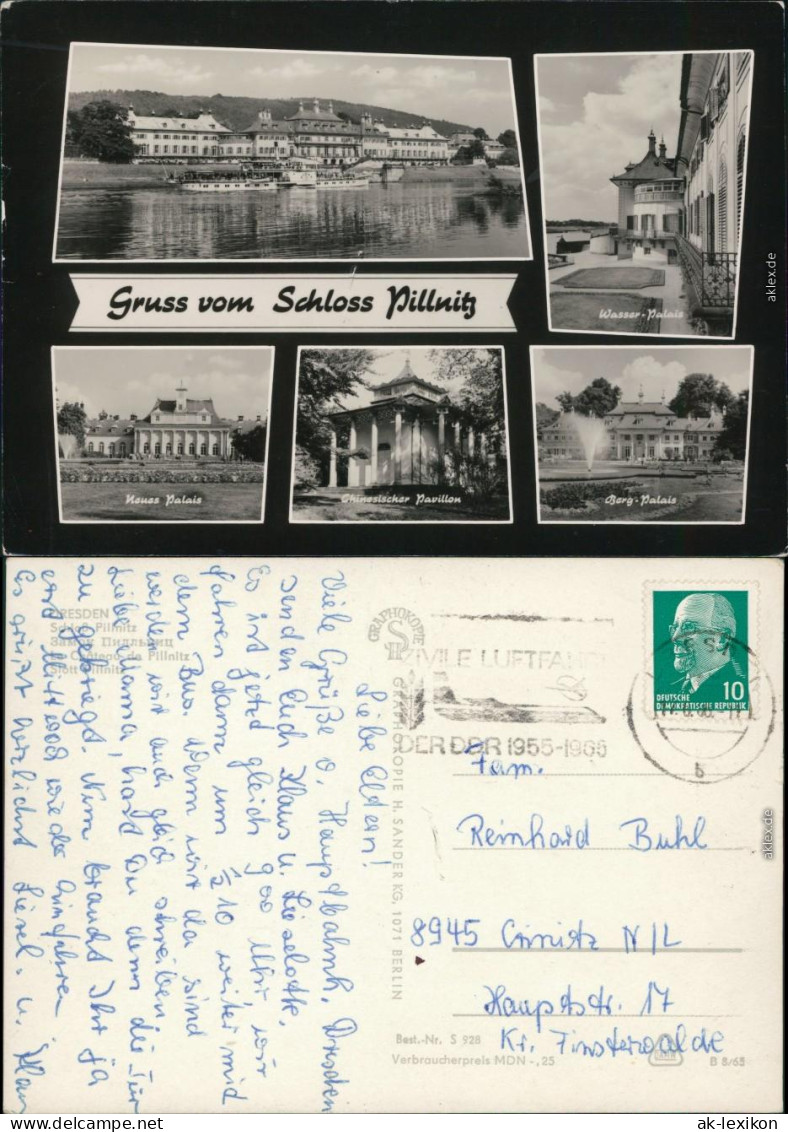 Gruss vom Schloss Pillnitz
Wasser-Palais
Neues Palais
Chinesischer Pavillon
Berg-Palais
aklex.de
DRESDEN
Schloß Pillnitz
Замок Пильниц
Le Château de Pillnitz
Slott Pillnitz
Liebe Eltern!
Viele Grüße v. Hauptbahnh. Dresden
senden Euch Klaus u. Lieselotte.
Es ist jetzt gleich 9 00 Uhr wir
fahren dann um ½ 10 weiter mid
dem Bus. Wenn wir da sind
werden wir auch gleich schreiben
Liebe Mama, hast Du denn die Tür
zu gekriegt. Nun braucht Ihr ja
erst Mittwoch wieder
Es grüßt herzlichst Liesel. u. Klau
GRAPHOKOPIE
GRAPHOKOPIE H. SANDER KG, 1071 BERLIN
ZIVILE LUFTFAHRT
DER DDR 1955-1965
DEUTSCHE
DEMOKRATISCHE REPUBLIK
10
b
Fam.
Reinhard Buhl
8945 Crinitz N/L
Hauptstr. 17
Kr. Finsterwalde
Best.-Nr. S 928
Verbraucherpreis MDN -,25
B 8/65
aklex.de
ak-lexikon
ak-lexikon.com